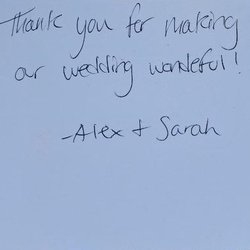 Thank you for making
our wedding wonderful!
-Alex + Sarah